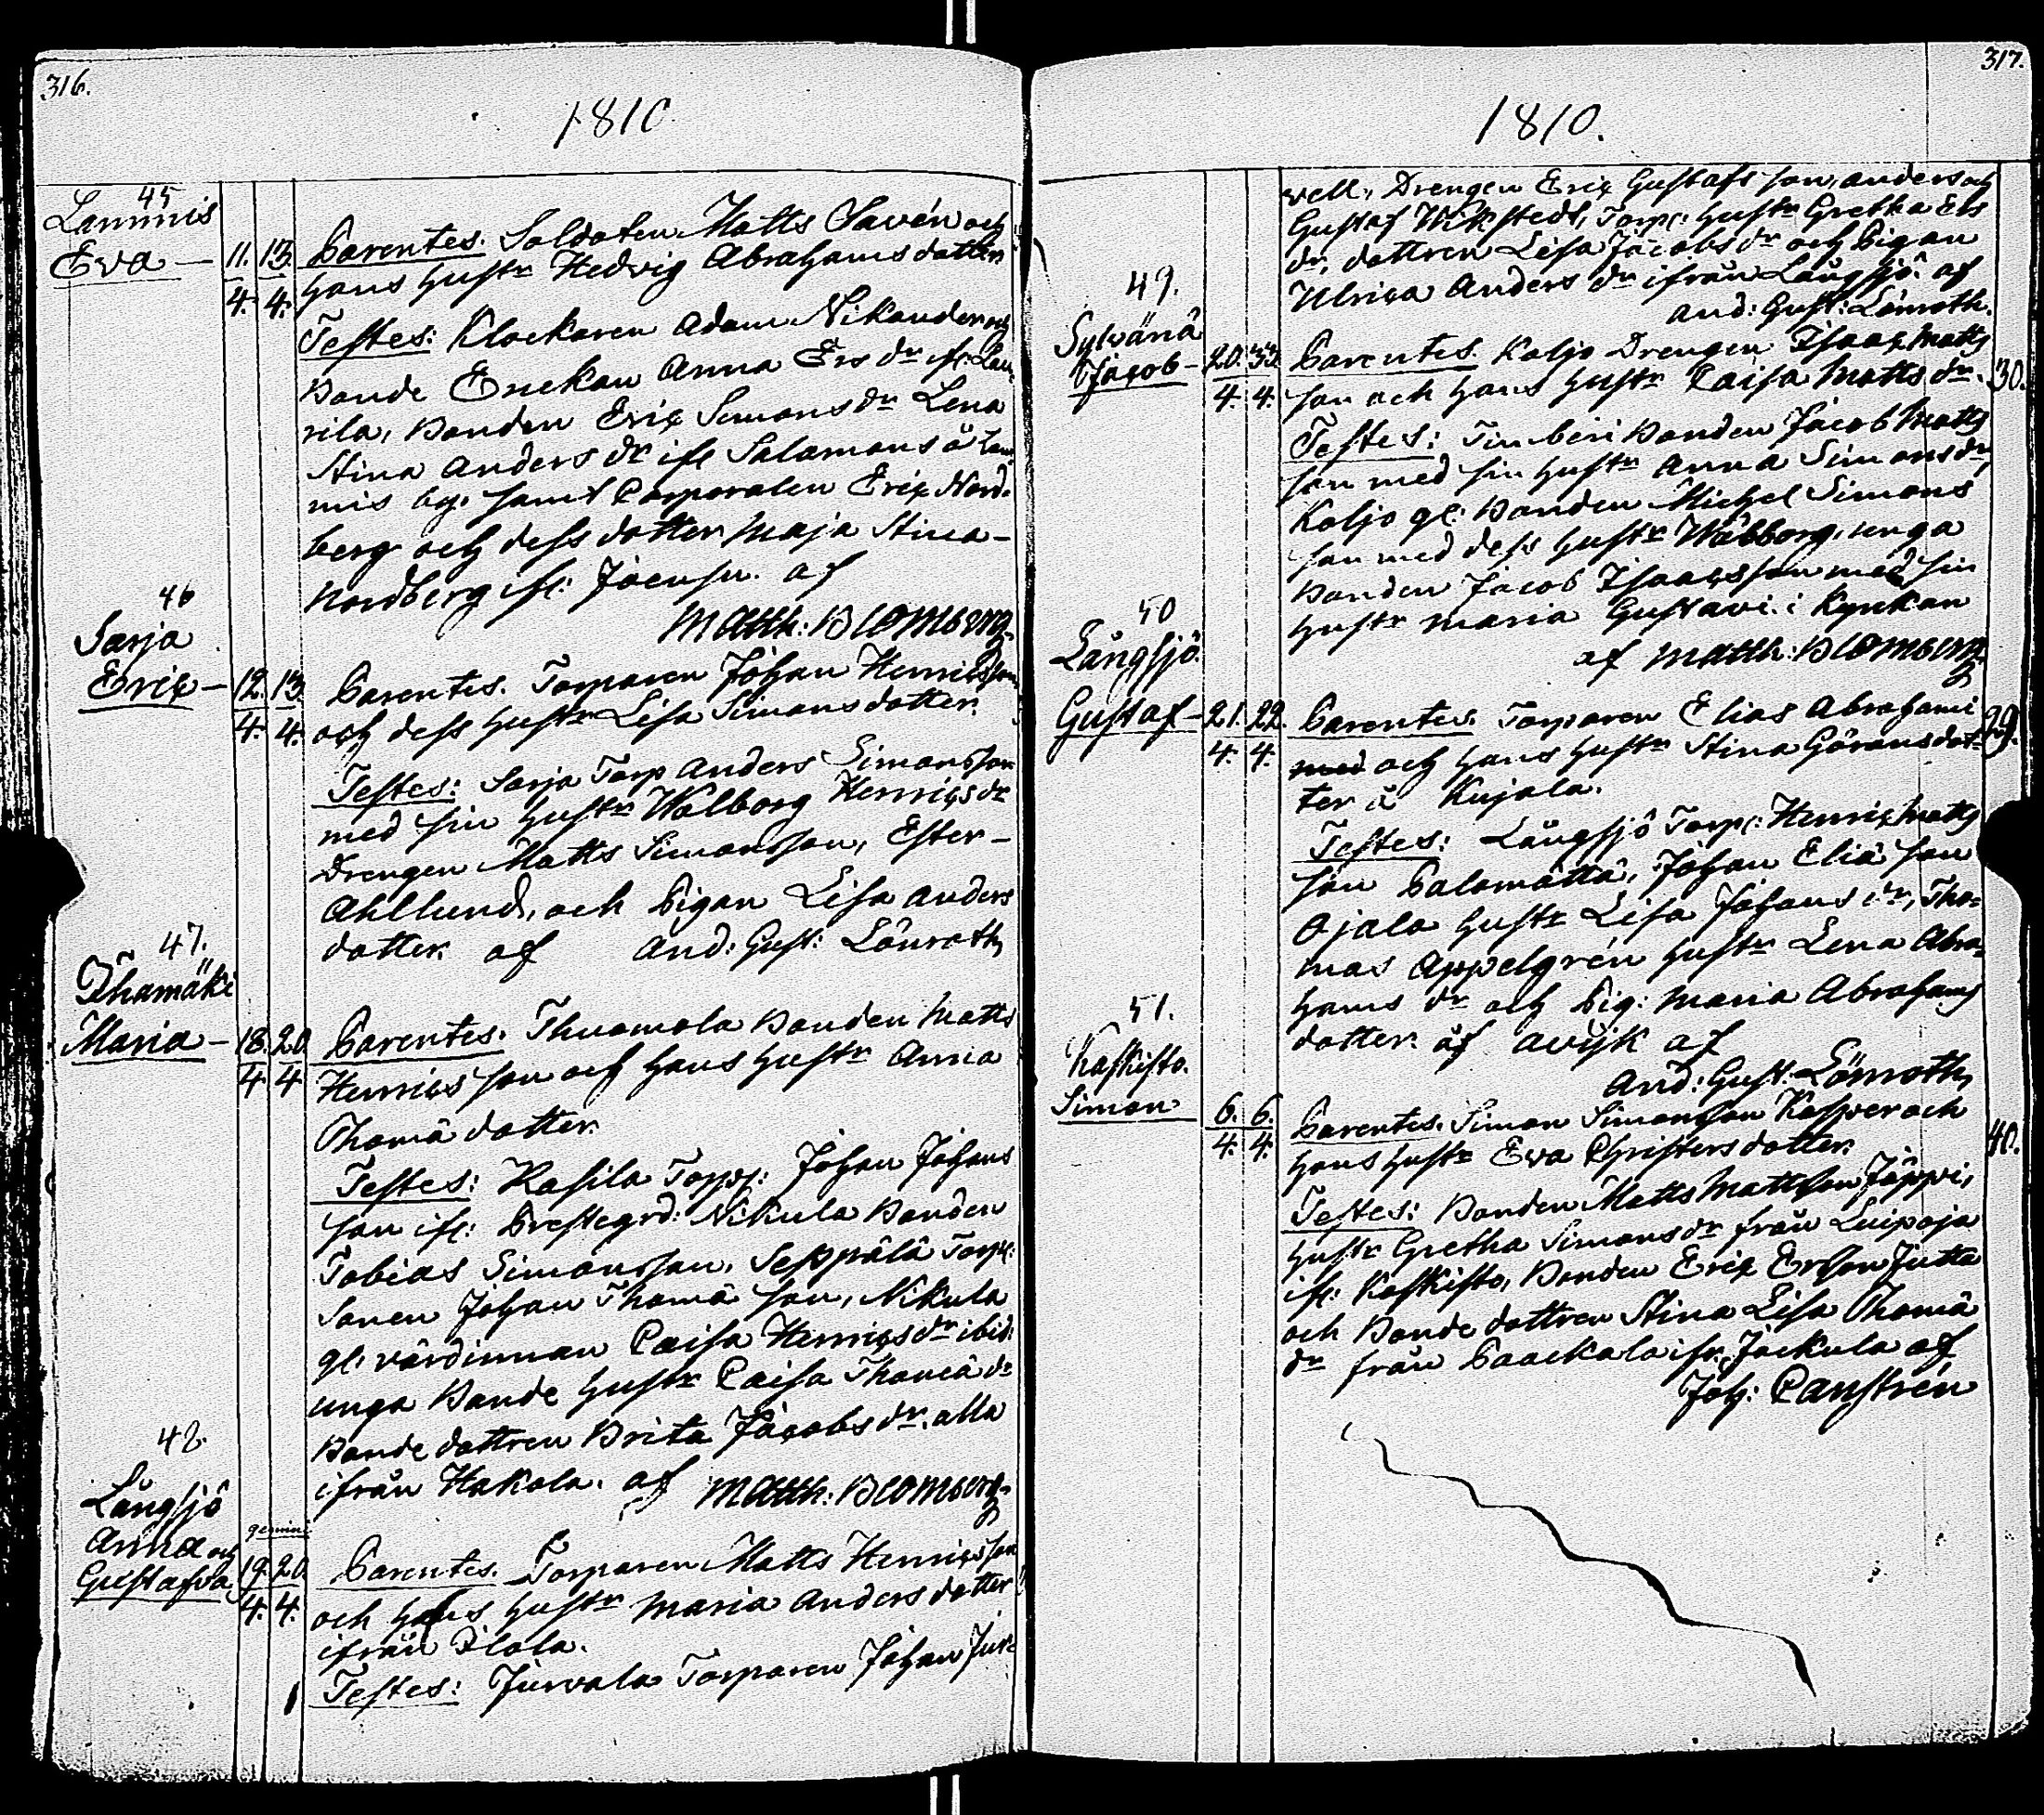 316.
1810
45
Lammis
Eva — 11. 13. Parentes. Soldaten Matts Savén och
4. 4. hans hustr Hedvig Abrahams dotter
Testes: Klockaren Adam Nikander och
Bonde Enckan Anna Ers dr ifr: Lau
rila, Bonden Eric Simons dr Lena
Stina Anders dr ifr Salamons å Lam
mis by. samt Corporalen Eric Nord-
berg och dess dotter Maja Stina
Nordberg ifr: Joensu. af
Matth: Blomberg
46
Sarja
Eric — 12. 13. Parentes. Torparen Johan Henricsson
4. 4. och dess hustr Lisa Simonsdotter.
Testes: Sarja Torp Anders Simonsson
med sin hustr Walborg Henrics dr
Drengen Matts Simonsson, Ester
Ahllund, och Pigan Lisa Anders
dotter. af And: Gust: Lönroth
47.
Ihamäki
Maria — 18. 20. Parentes. Thuomola Bonden Matts
4 4 Henrics son och hans hustr Anna
Thomä dotter.
Testes: Kasila Torp: Johan Johans
son ifr: Prestegrd: Nikula Bonden
Tobias Simonsson, Seppälä Torp:
Sonen Johan Thomä son, Nikula
gl. värdinnan Caisa Henrics dr ibid:
unga Bonde hustr Caisa Thomä dr
Bonde dottren Brita Jacobs dr. alla
ifrån Hakola. af Matth: Blomberg
48.
Långsjö
Anna och gemini
Gustafva 19. 20. Parentes. Torparen Matts Henricsson
4. 4. och hans hustr Maria Anders dotter
ifrån Pilola.
Testes: Jurvala Torparen Johan Jur-
317.
1810.
vell, Drengen Eric Gustafs son, Anders och
Gustaf Wikstedt, Torp: hustr Gretha Ers
dr, dottren Lisa Jacobs dr och Pigan
Ulrica Anders dr ifrån Långsjö. af
And: Gust: Lönroth.
49.
Sylvänä
Jacob — 20. 23. Parentes. Koljo Drengen Isaac Matts 30.
4. 4. son och hans hustr Caisa Matts dr.
Testes: Timberi Bonden Jacob Matts
son med sin hustr Anna Simons dr,
Koljo gl: Bonden Michel Simons
son med dess hustr Wabborg, unga
Bonden Jacob Isaacsson med sin
hustr Maria Gustavi i Kynkan
af Matth: Blomberg
50
Långsjö.
Gustaf — 21. 22. Parentes. Torparen Elias Abrahami 29.
4. 4. med och hans hustr Stina Göransdot-
ter å Kujala.
Testes: Långsjö Torp: Henric Matts
son Palomätta, Johan Eliä son
Ojala hustr Lisa Johans dr, Tho-
mas Appelgrén hustr Lena Abra-
hams dr och Pig: Maria Abrahams
dotter. af Avijk af
And: Gust: Lönroth
51.
Kaskisto.
Simon 6. 6. Parentes. Simon Simonsson Kasper och 40.
4. 4. hans hustr Eva Christers dotter.
Testes: Bonden Matts Mattsson Jäppi,
hustr Gretha Simons dr från Luipaja
ifr: Kaskisto, Bonden Eric Ersson Jutta
och Bonde dottren Stina Lisa Thomä
dr från Paackala ifr. Jackula af
Joh: Canstrén